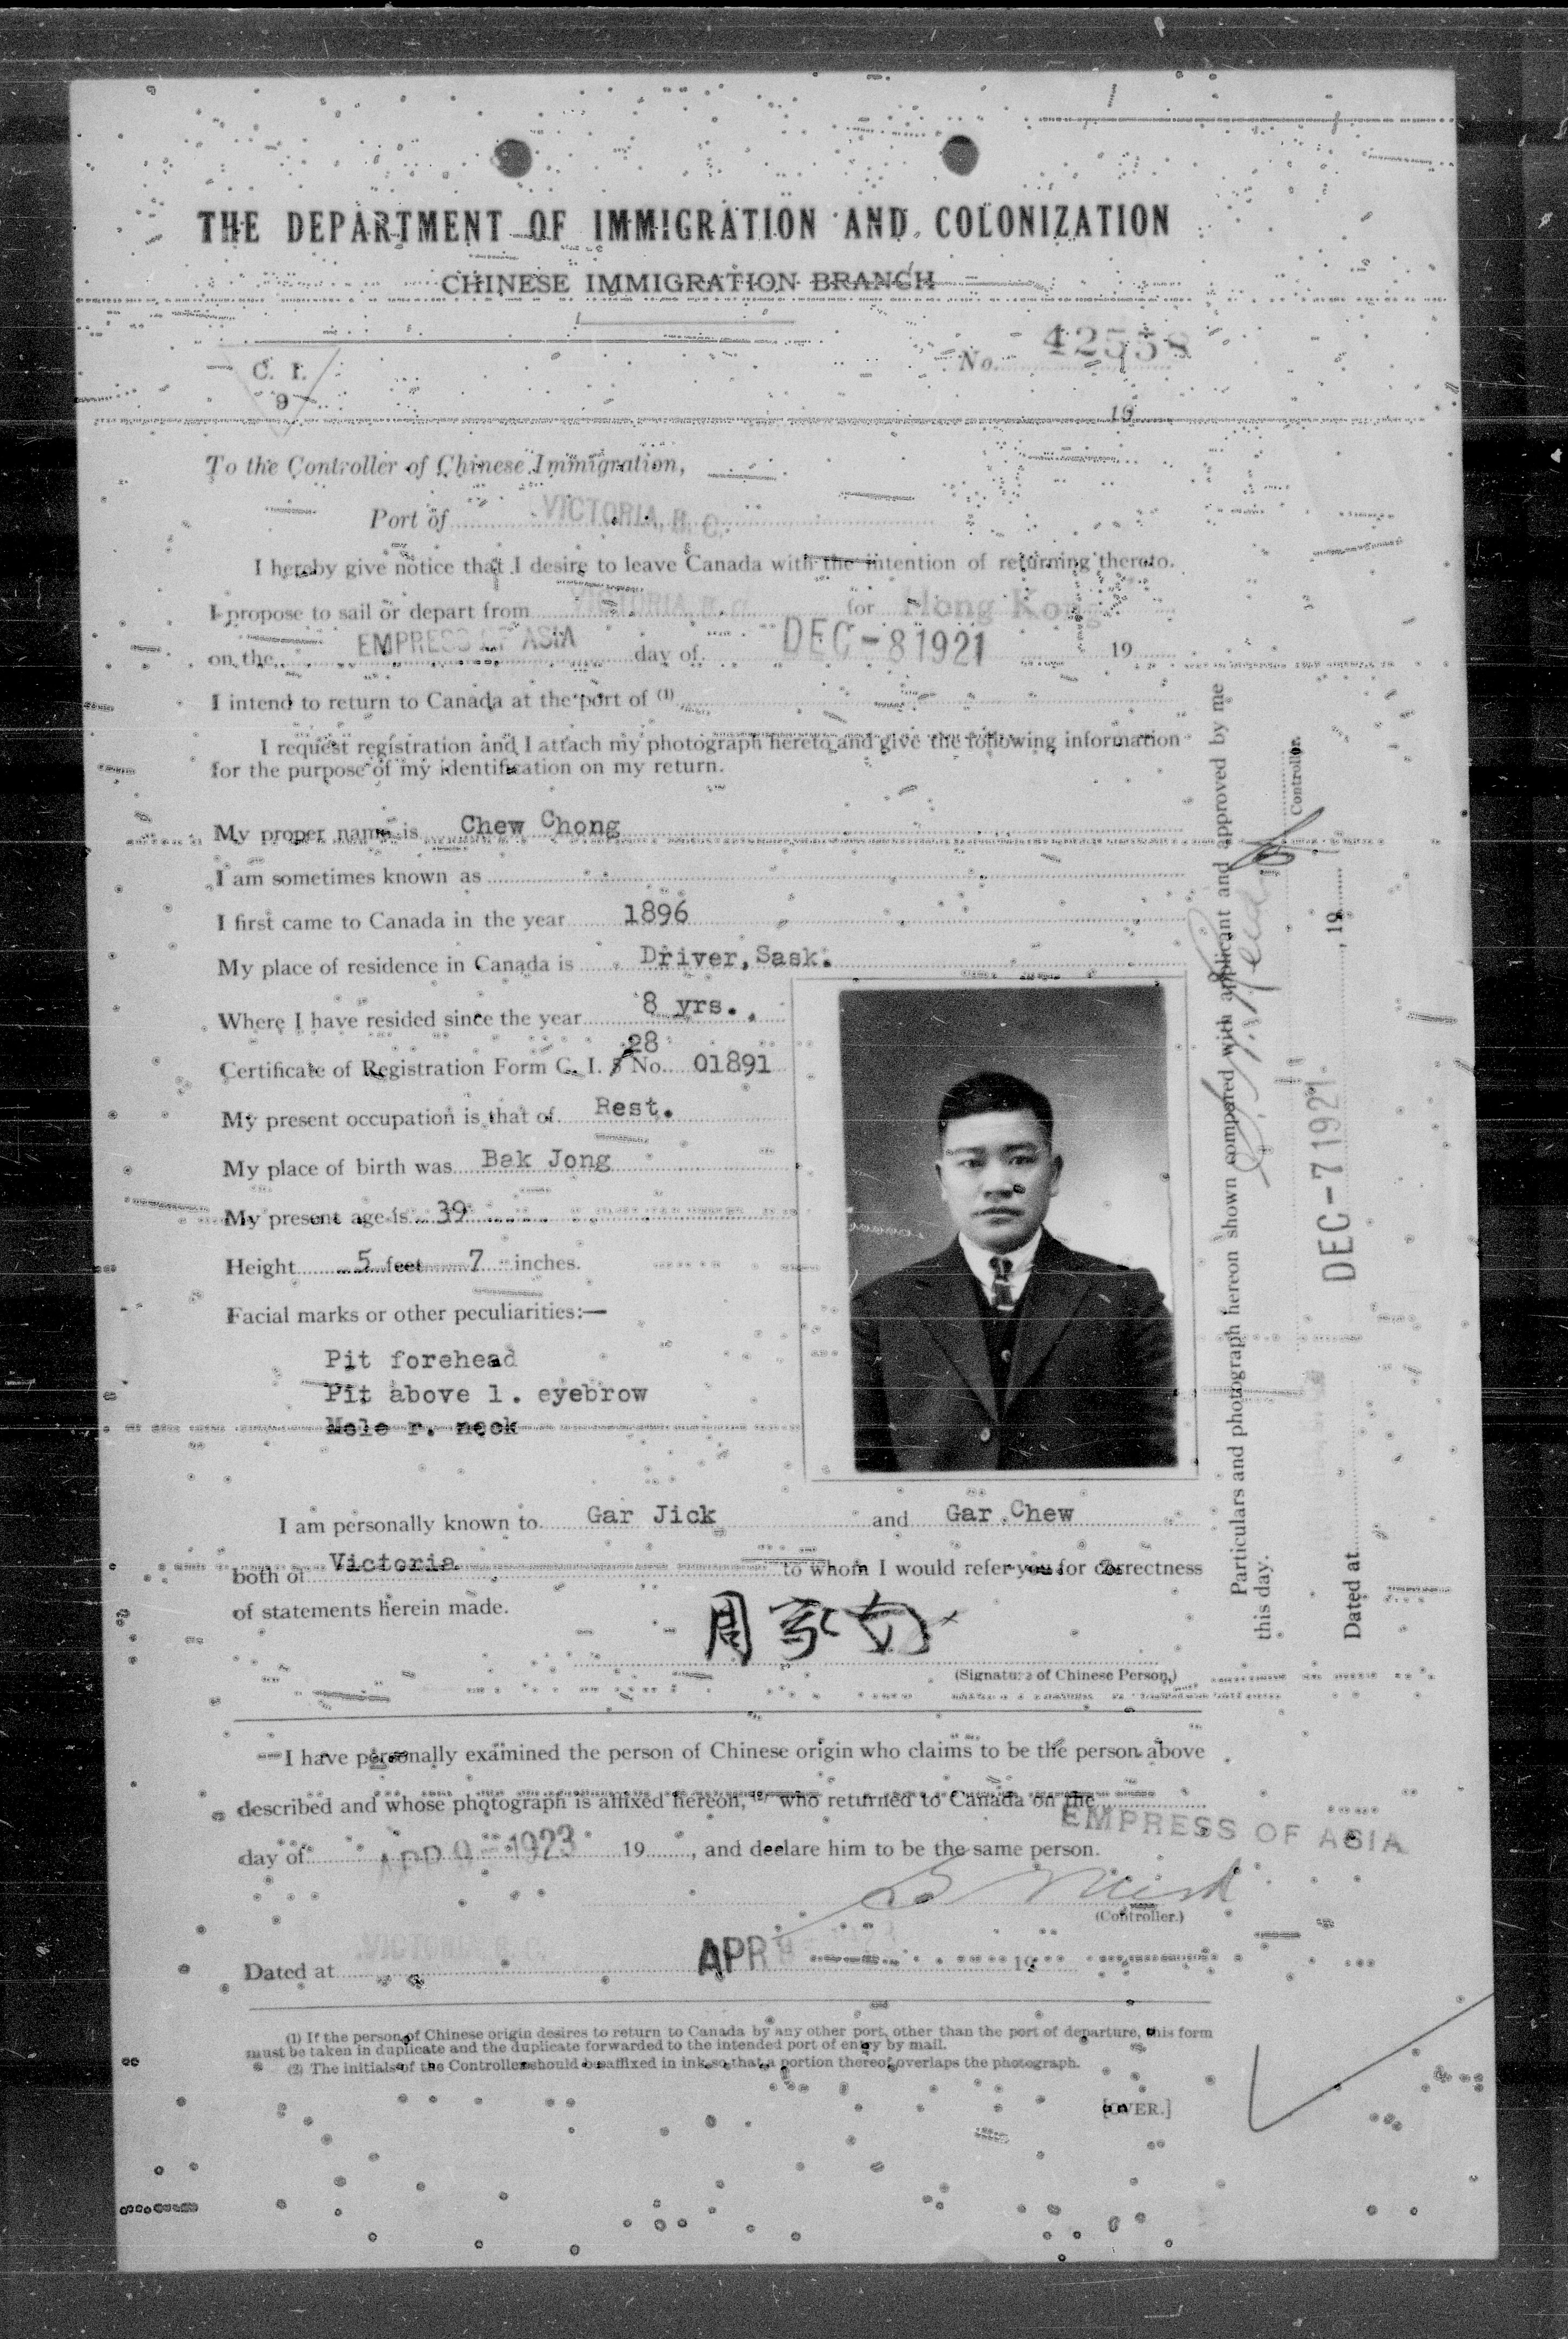 THE DEPARTMENT OF IMMIGRATION AND COLONIZATION
CHINESE IMMIGRATION BRANCH
No. 42558
C. I.
9
19
To the Controller of Chinese Immigration,
Port of VICTORIA, B. C.
I hereby give notice that I desire to leave Canada with the intention of returning thereto.
I propose to sail or depart from VICTORIA, B. C. for Hong Kong
on the EMPRESS OF ASIA day of DEC - 8 1921 19
I intend to return to Canada at the port of (1)
I request registration and I attach my photograph hereto and give the following information
for the purpose of my identification on my return.
My proper name is Chew Chong
I am sometimes known as
I first came to Canada in the year 1896
My place of residence in Canada is Driver, Sask.
Where I have resided since the year 8 yrs.
28
Certificate of Registration Form C. I. 5 No. 01891
My present occupation is that of Rest.
My place of birth was Bak Jong
My present age is 39
Height 5 feet 7 inches.
Facial marks or other peculiarities:—
Pit forehead
Pit above l. eyebrow
Mole r. neck
I am personally known to Gar Jick and Gar Chew
both of Victoria to whom I would refer you for correctness
of statements herein made.
周
(Signature of Chinese Person,)
I have personally examined the person of Chinese origin who claims to be the person above
described and whose photograph is affixed hereon, who returned to Canada on the
EMPRESS OF ASIA
day of APR 9 - 1923 19, and declare him to be the same person.
(Controller.)
Dated at VICTORIA, B. C. APR 9 19
(1) If the person of Chinese origin desires to return to Canada by any other port, other than the port of departure, this form
must be taken in duplicate and the duplicate forwarded to the intended port of entry by mail.
(2) The initials of the Controller should be affixed in ink so that a portion thereof overlaps the photograph.
[OVER.]
Particulars and photograph hereon shown compared with applicant and approved by me
this day.
Controller.
Dated at DEC - 7 1921. , 19